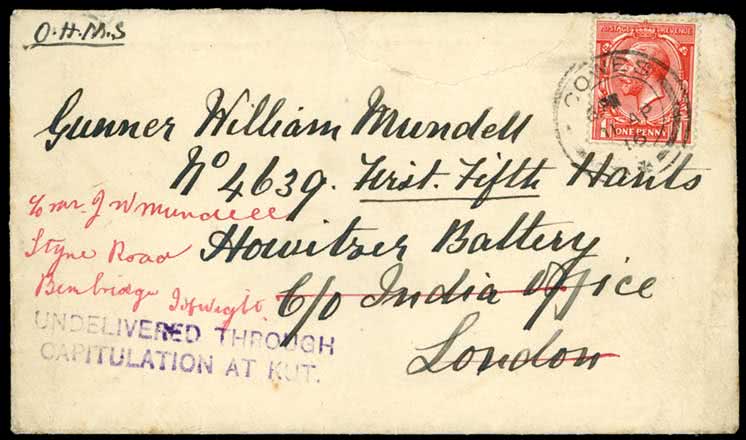 O.H.M.S
POSTAGE REVENUE
ONE PENNY
COWES
AP
16
Gunner William Mundell
No 4639. First. Fifth Hants
Howitzer Battery
C/o India Office
London
c/o mr. J W Mundell
Styne Road
Bembridge I of Wight
UNDELIVERED THROUGH
CAPITULATION AT KUT.